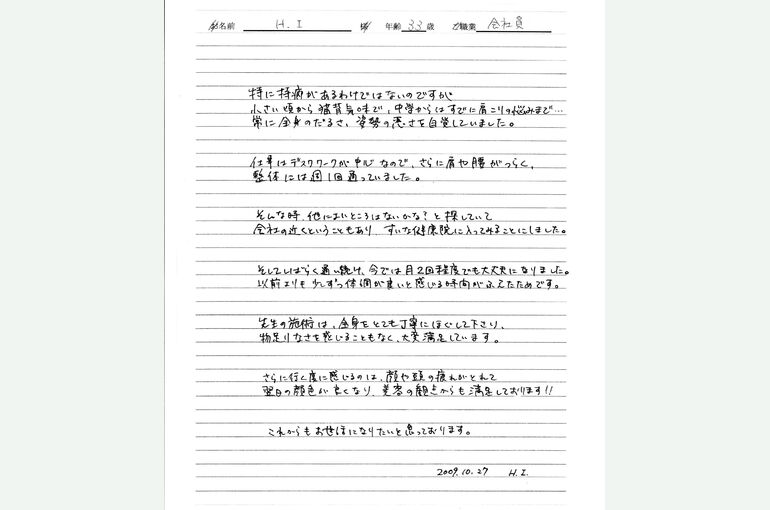 お名前 H.I 様 年齢 33 歳 ご職業 会社員
特に持病があるわけではないのですが
小さい頃から猫背気味で、中学からはすでに肩こりの悩みまで…
常に全身のだるさ、姿勢の悪さを自覚していました。
仕事はデスクワークが中心なので、さらに肩や腰がつらく、
整体には週1回通っていました。
そんな時、他によいところはないかな?と探していて
会社の近くということもあり、すいな健康院に入ってみることにしました。
そしてしばらく通い続け、今では月2回程度でも大丈夫になりました。
以前よりも少しずつ体調が良いと感じる時間がふえたためです。
先生の施術は、全身をとても丁寧にほぐして下さり、
物足りなさを感じることもなく、大変満足しています。
さらに行く度に感じるのは、顔や頭の疲れがとれて
翌日の顔色が良くなり、美容の観点からも満足しております!!
これからもお世話になりたいと思っております。
2009.10.27 H.I.